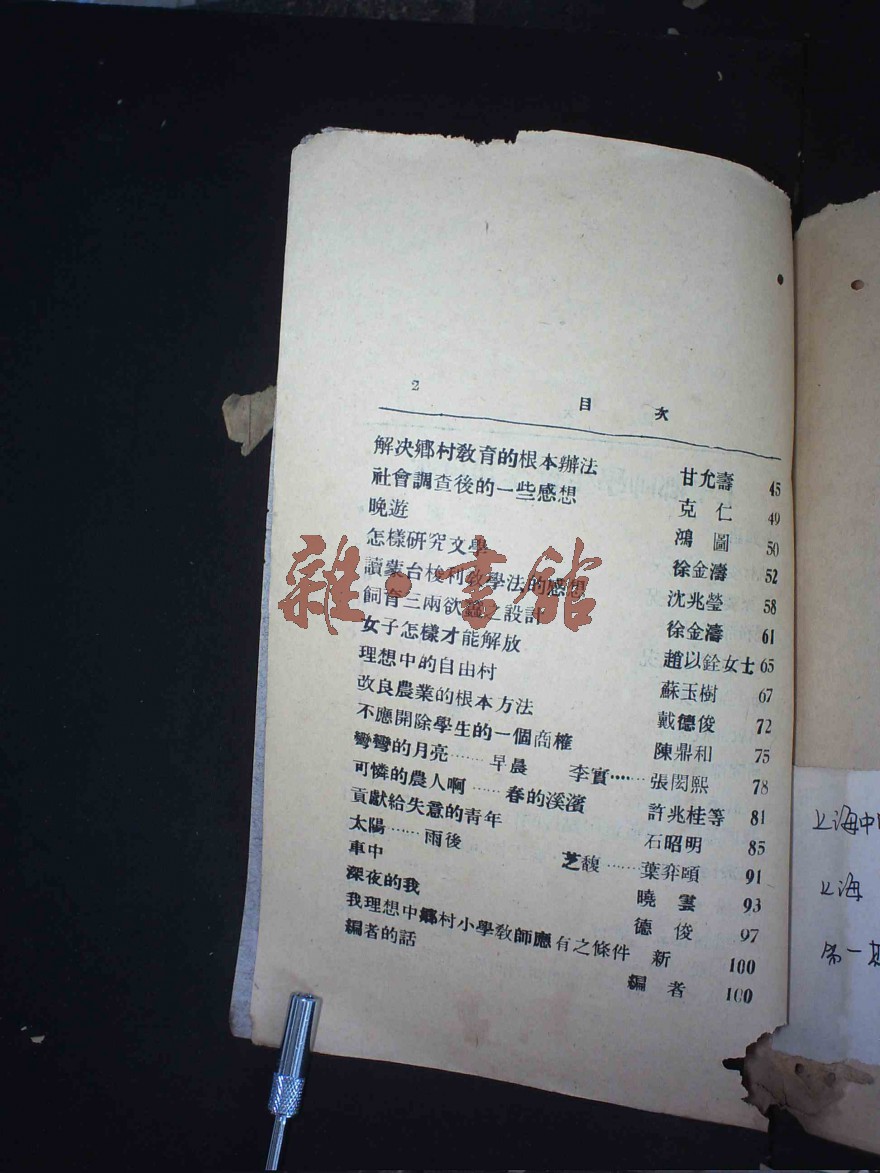 2
目 次
解决鄉村教育的根本辦法 甘允壽 45
社會調查後的一些感想 克 仁 49
晚遊 鴻 圖 50
怎樣研究文學 徐金濤 52
讀蒙台梭利教學法的感想 沈兆瑩 58
飼育三兩 之設計 徐金濤 61
女子怎樣才能解放 趙以銓女士 65
理想中的自由村 蘇玉樹 67
改良農業的根本方法 戴德俊 72
不應開除學生的一個商榷 陳鼎和 75
彎彎的月亮……早晨 李實……張閎熙 78
可憐的農人啊……春的溪濱 許兆桂等 81
貢獻給失意的青年 石昭明 85
太陽……雨後 芝馥……葉弈頤 91
車中 曉 雲 93
深夜的我 德 俊 97
我理想中鄉村小學教師應有之條件 新 100
編者的話 編 者 100
雜·書館
上海中
上海
第一